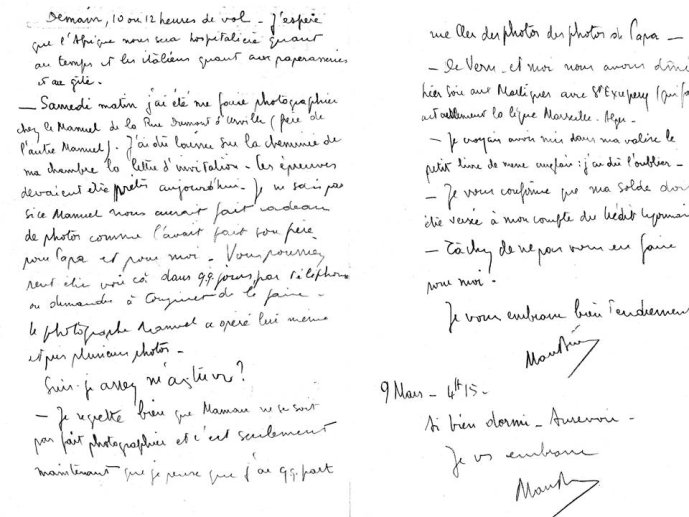 Demain, 10 ou 12 heures de vol - J'espère
que l'Afrique nous sera hospitalière quant
au temps et les italiens quant aux paperasseries
et au gîte.
- Samedi matin j'ai été me faire photographier
chez le Manuel de la Rue Dumont d'Urville (père de
l'autre Manuel). J'ai dû laisser sur la cheminée de
ma chambre la lettre d'invitation. Les épreuves
devaient être prêtes aujourd'hui. Je ne sais pas
si ce Manuel nous aurait fait cadeau
de photos comme l'avait fait son père
pour Papa et pour moi. Vous pourriez
peut être voir çà dans qq. jours par téléphone
ou demander à de le faire -
Le photographe Manuel a opéré lui même
et pris plusieurs photos -
Suis-je assez m'as tu vu ?
- Je regrette bien que Maman ne se soit
pas fait photographier et c'est seulement
maintenant que je pense que j'ai qq. part
rue des photos des photos de Papa -
- de Vern et moi nous avons dîné
hier soir aux Martigues avec St Exupéry (qui fait
actuellement la ligne Marseille. Alger -
- Je croyais avoir mis dans ma valise le
petit livre de messe anglais : j'ai dû l'oublier -
- Je vous confirme que ma solde doit
être versée à mon compte du Crédit Lyonnais
- Tâchez de ne pas vous en faire
pour moi.
Je vous embrasse bien tendrement
9 Mars - 4h 15 -
Ai bien dormi - Aurevoir -
Je vs embrasse